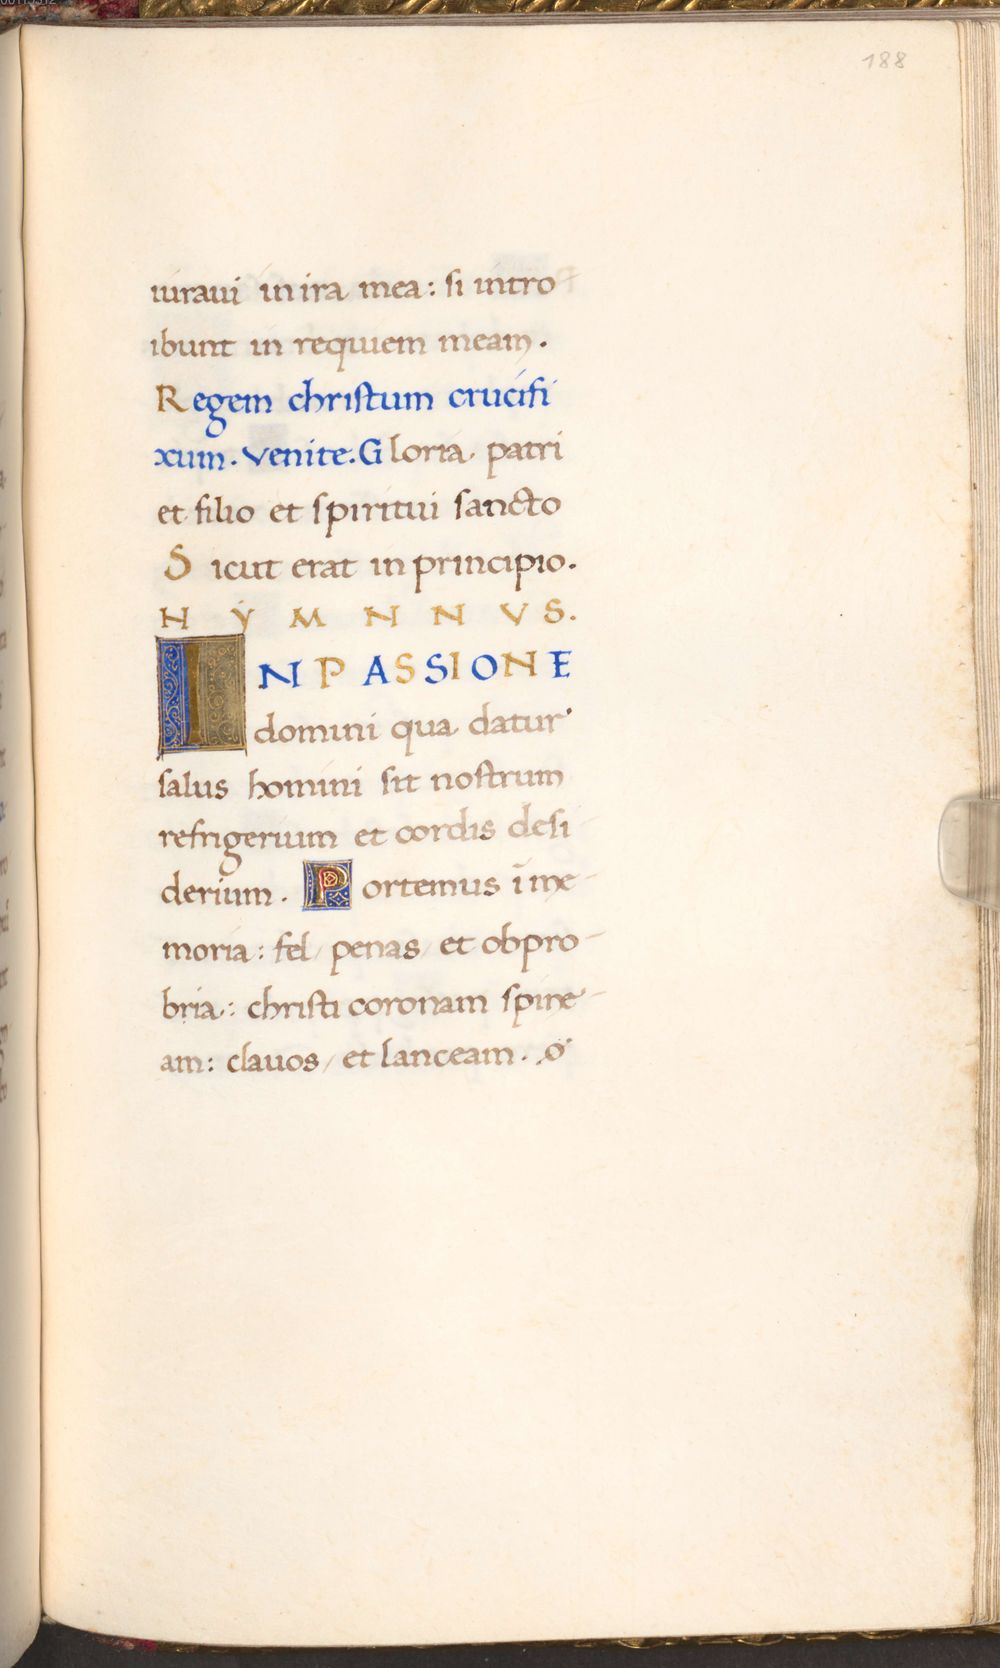 188
iuraui in ira mea: si intro
ibunt in requiem meam.
Regem christum crucifi
xum. venite. Gloria patri
et filio et spiritui sancto
Sicut erat in principio.
HYMNNVS.
IN PASSIONE
domini qua datur
salus homini sit nostrum
refrigerium et cordis desi
derium. Portemus ī me-
moria: fel/ penas/ et obpro-
bria: christi coronam spine-
am: clauos/ et lanceam.